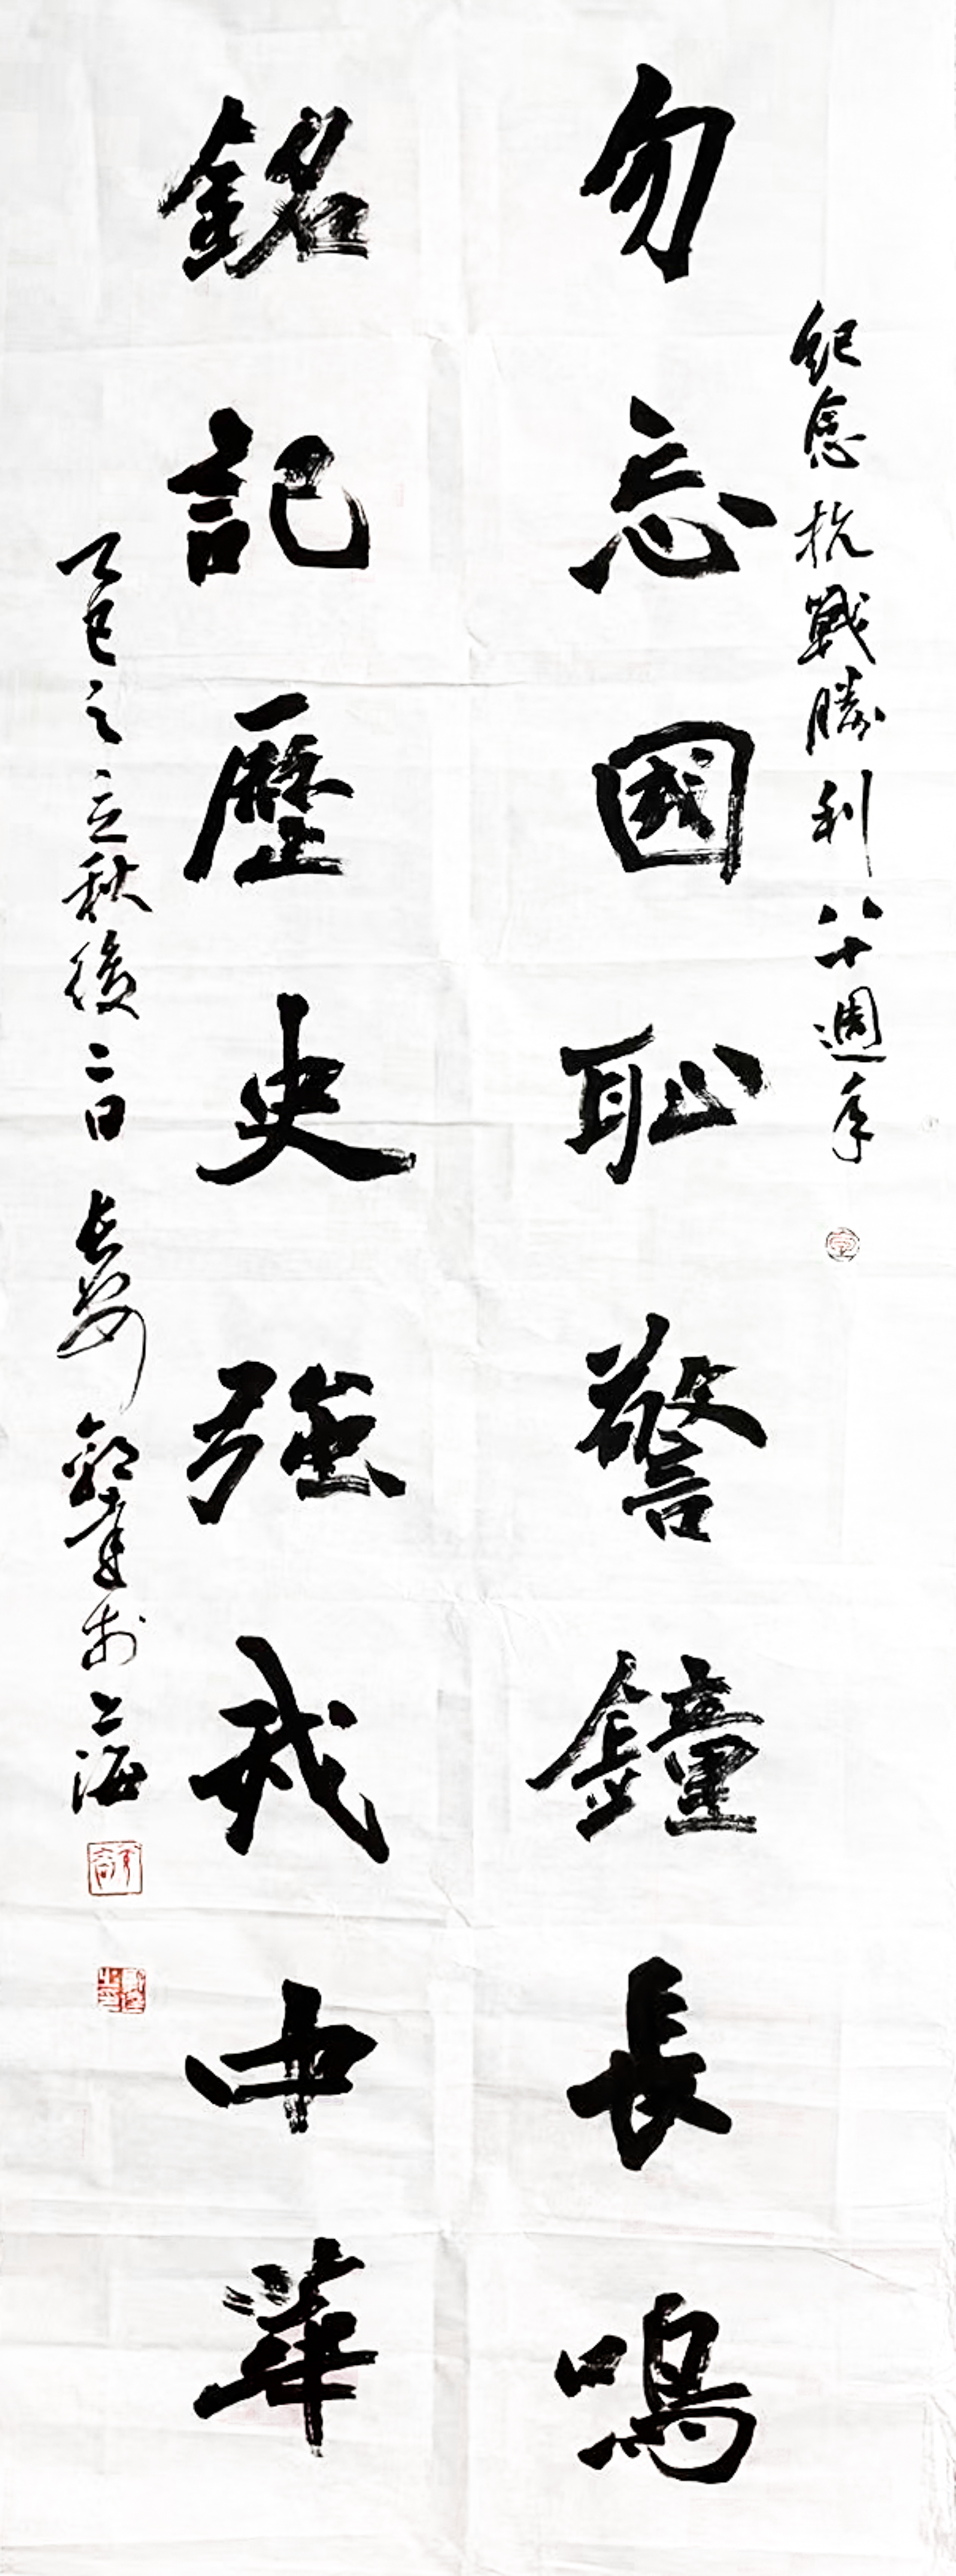 紀念抗戰勝利八十週年
勿忘國恥警鐘長鳴
銘記歷史強我中華
乙巳之立秋後二日長安鄭幸於上海